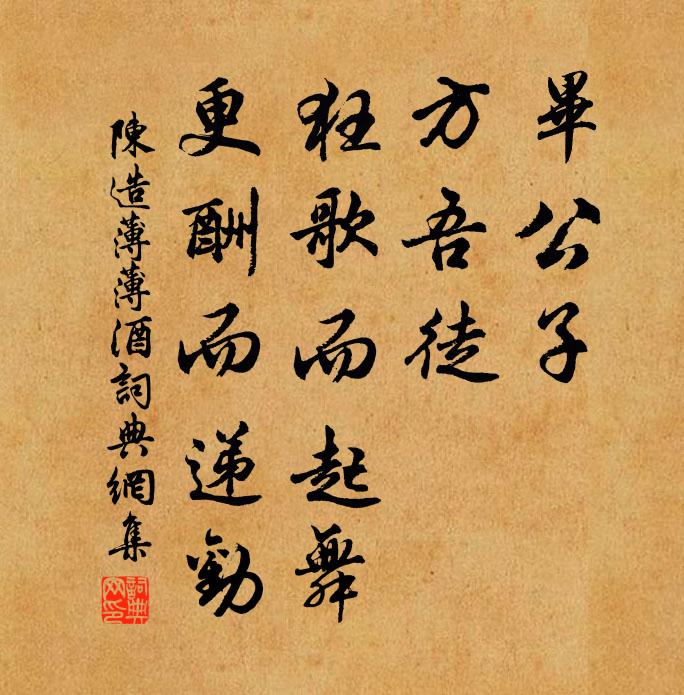 畢公子
方吾徒
狂歌而起舞
更酬而递勸
陳造薄薄酒詞典網集
詞典網印